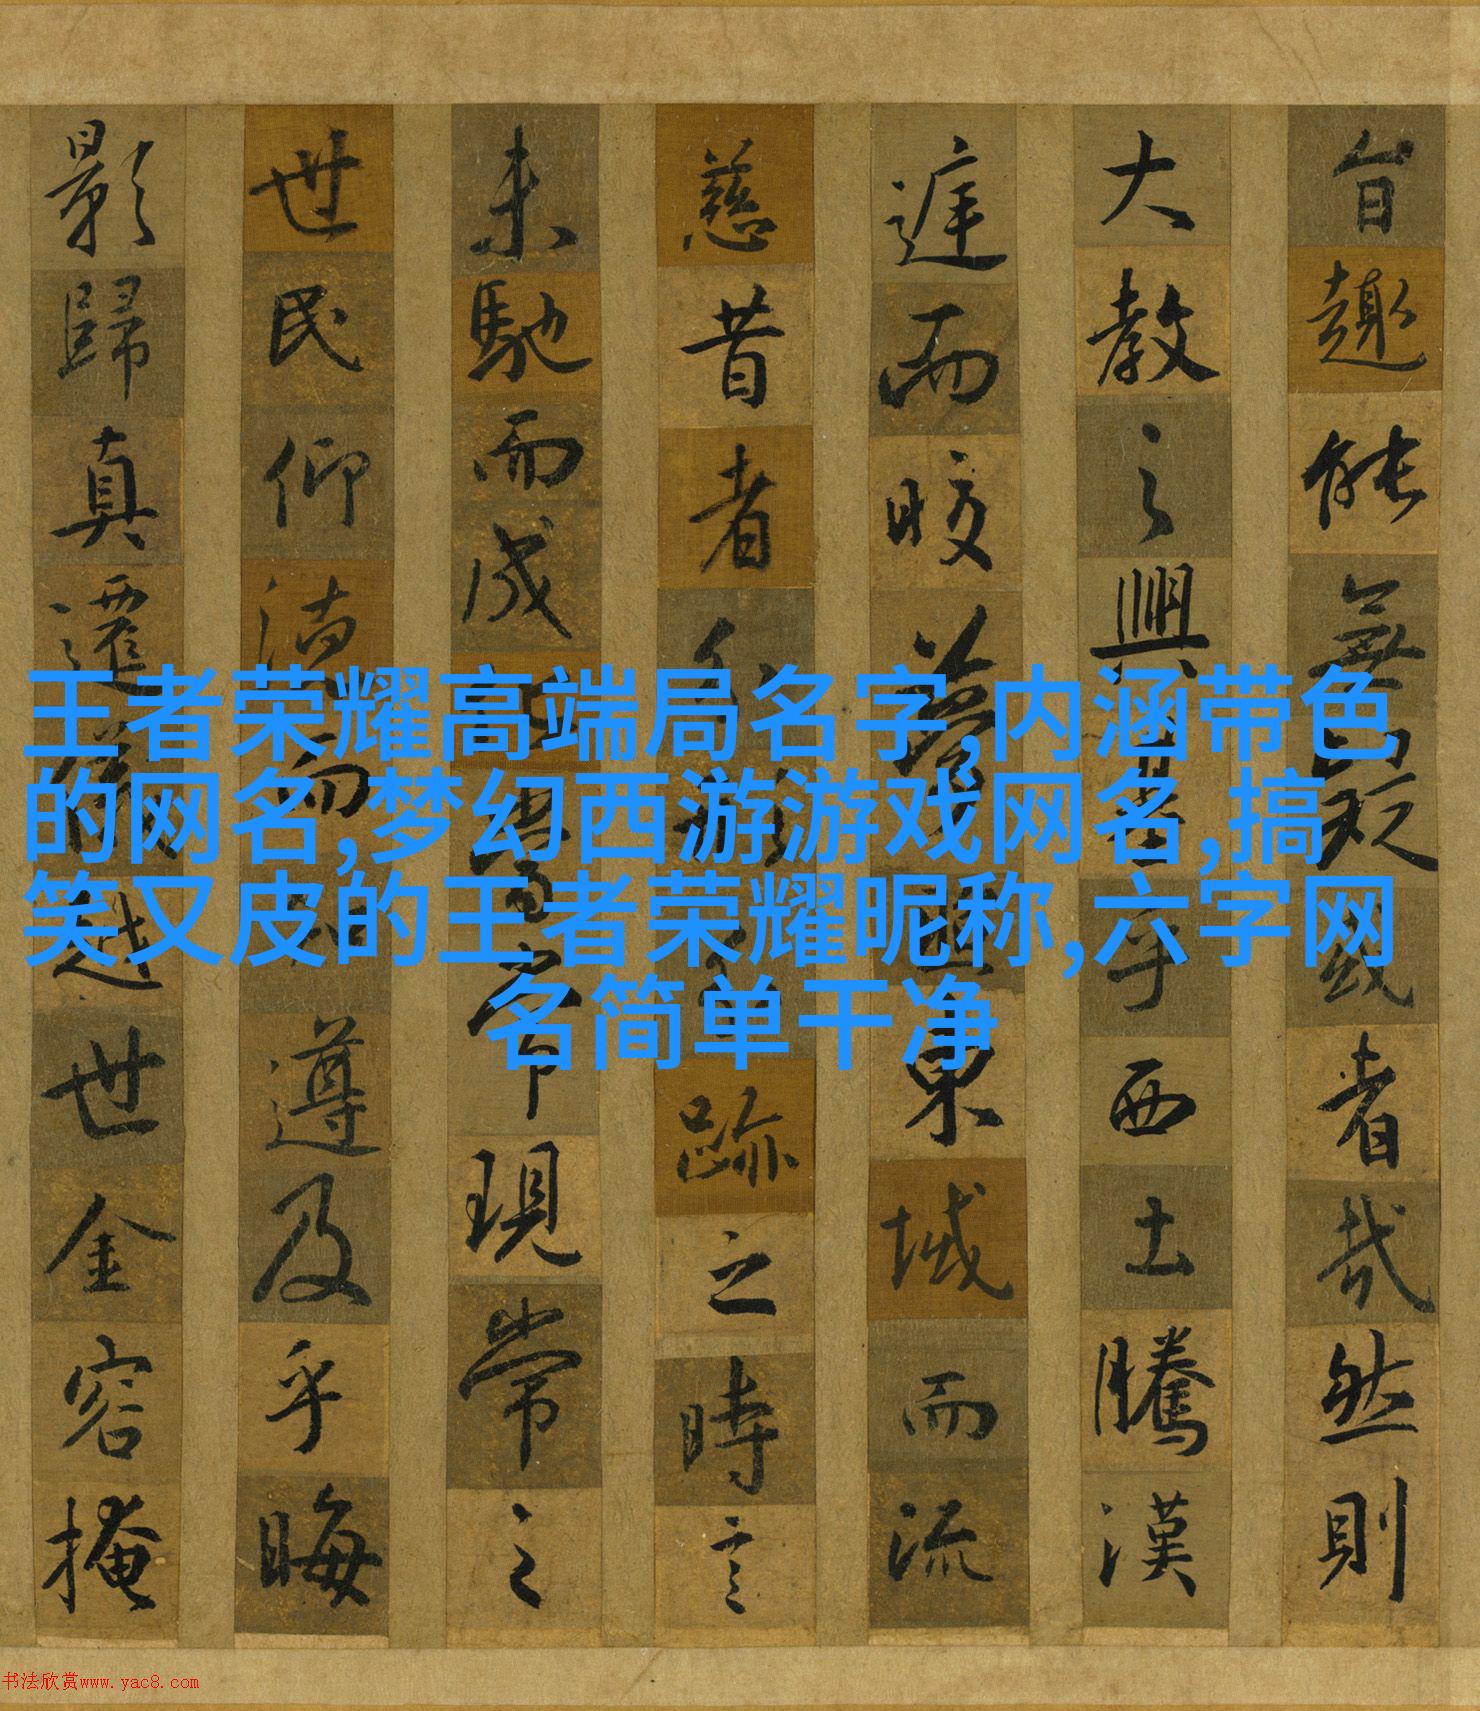 旨趣能無疑惑者哉然則
大教之興基乎西土騰漢
庭而皎夢照東域而流
慈昔者分形分跡之時言
未馳而成化當常現常之
世民仰德而知遵及乎晦
影歸真遷儀越世金容掩
王者荣耀高端局名字,内涵带色
的网名,梦幻西游游戏网名,搞
笑又皮的王者荣耀昵称,六字网
名简单干净
书法欣赏www.yac8.com